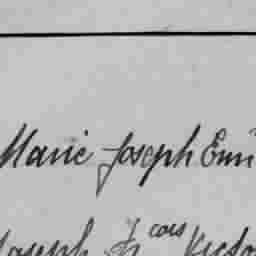 Marie Joseph Emi
Joseph F cois Victo